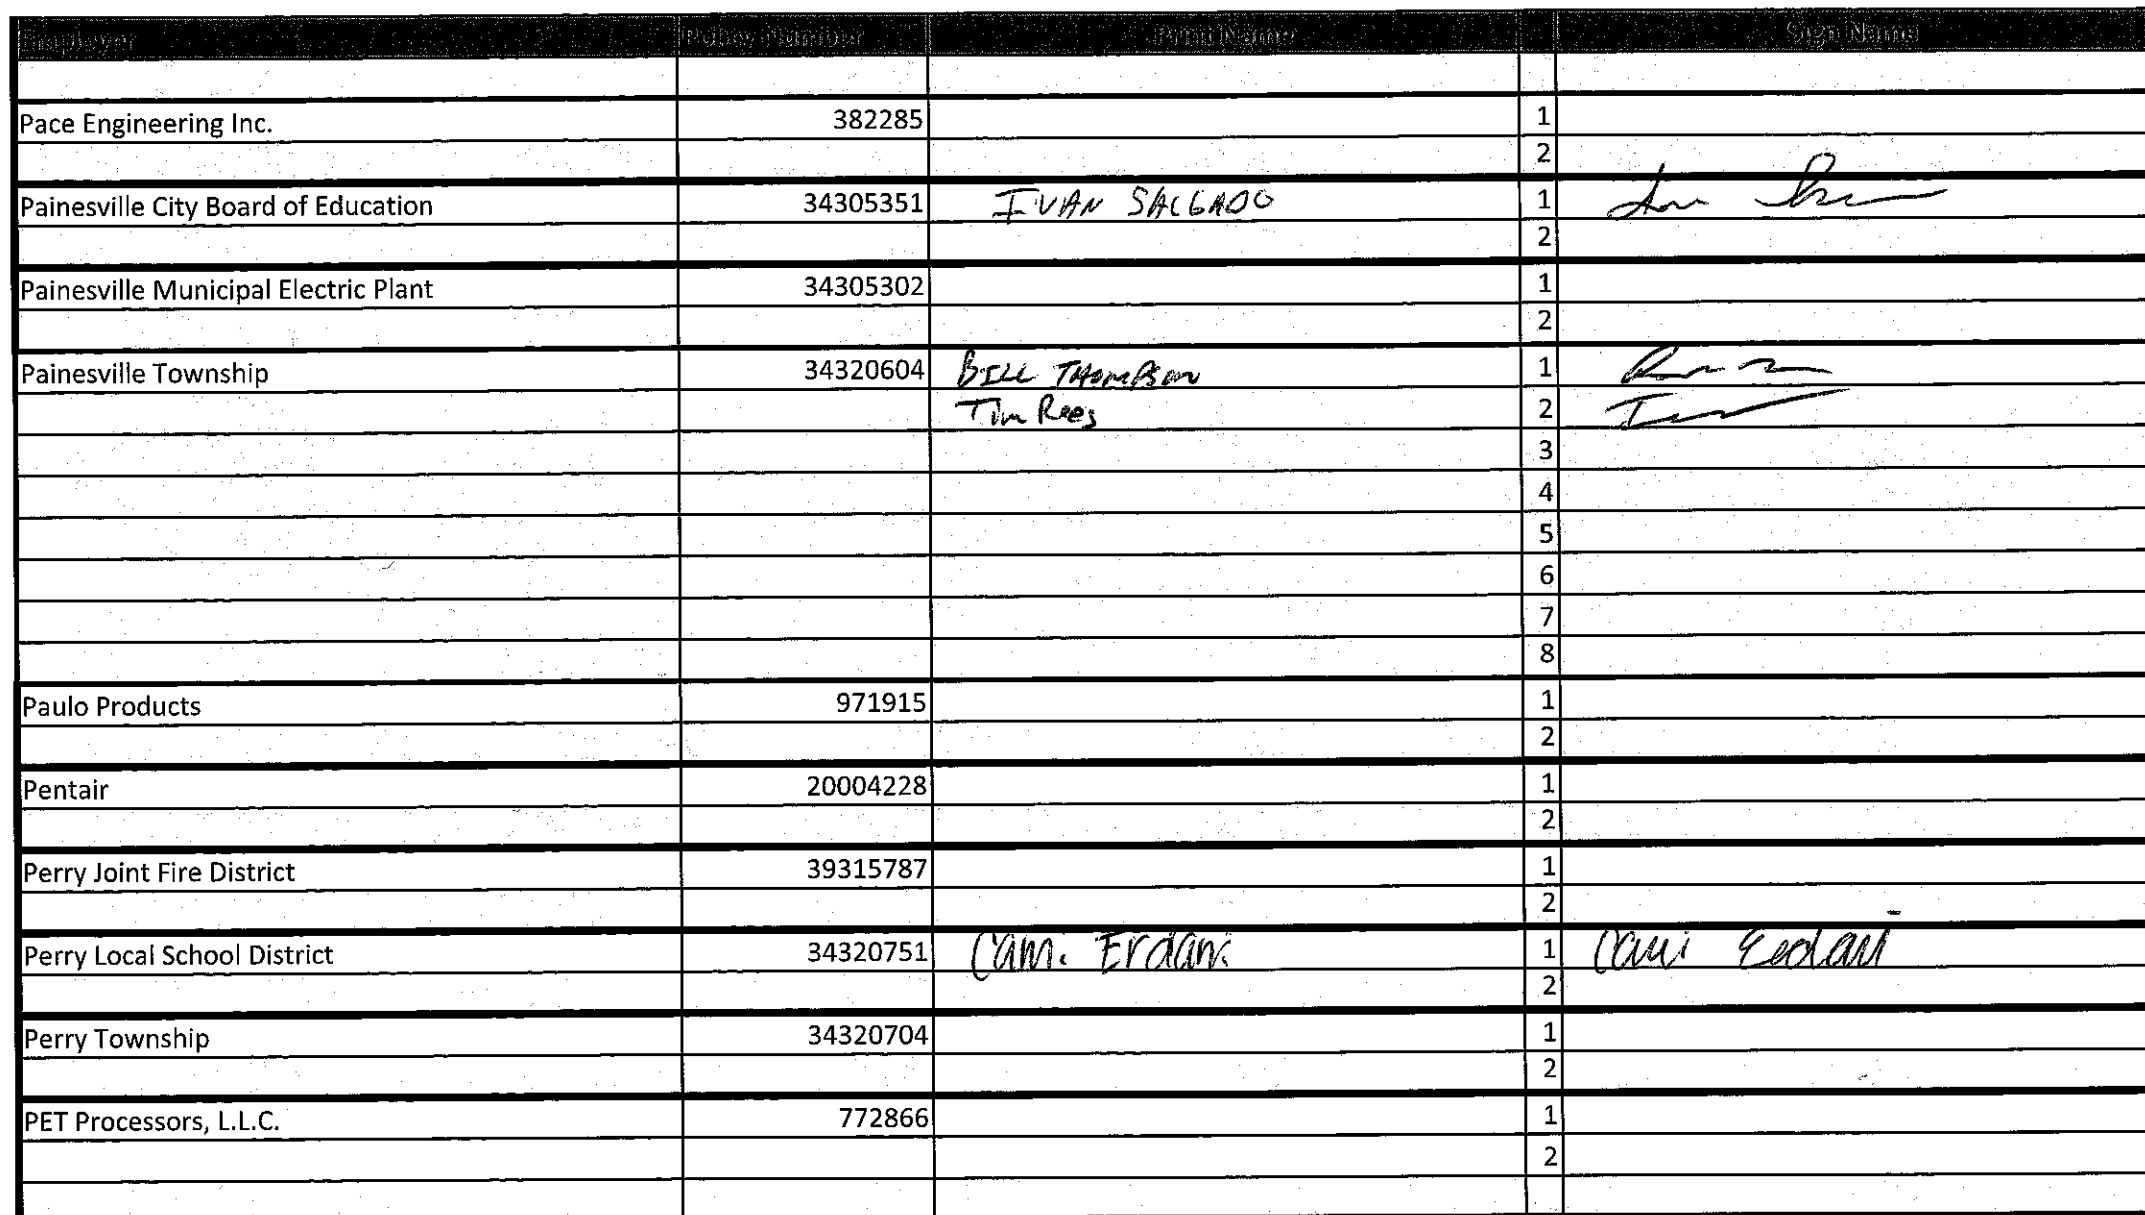 Employer Policy Number Print Name Sign Name
Pace Engineering Inc. 382285 1
2
Painesville City Board of Education 34305351 IVAN SALGADO 1
2
Painesville Municipal Electric Plant 34305302 1
2
Painesville Township 34320604 BILL THOMPSON 1
Tim Rees 2
3
4
5
6
7
8
Paulo Products 971915 1
2
Pentair 20004228 1
2
Perry Joint Fire District 39315787 1
2
Perry Local School District 34320751 Cami Erdani 1 Cami Erdani
2
Perry Township 34320704 1
2
PET Processors, L.L.C. 772866 1
2